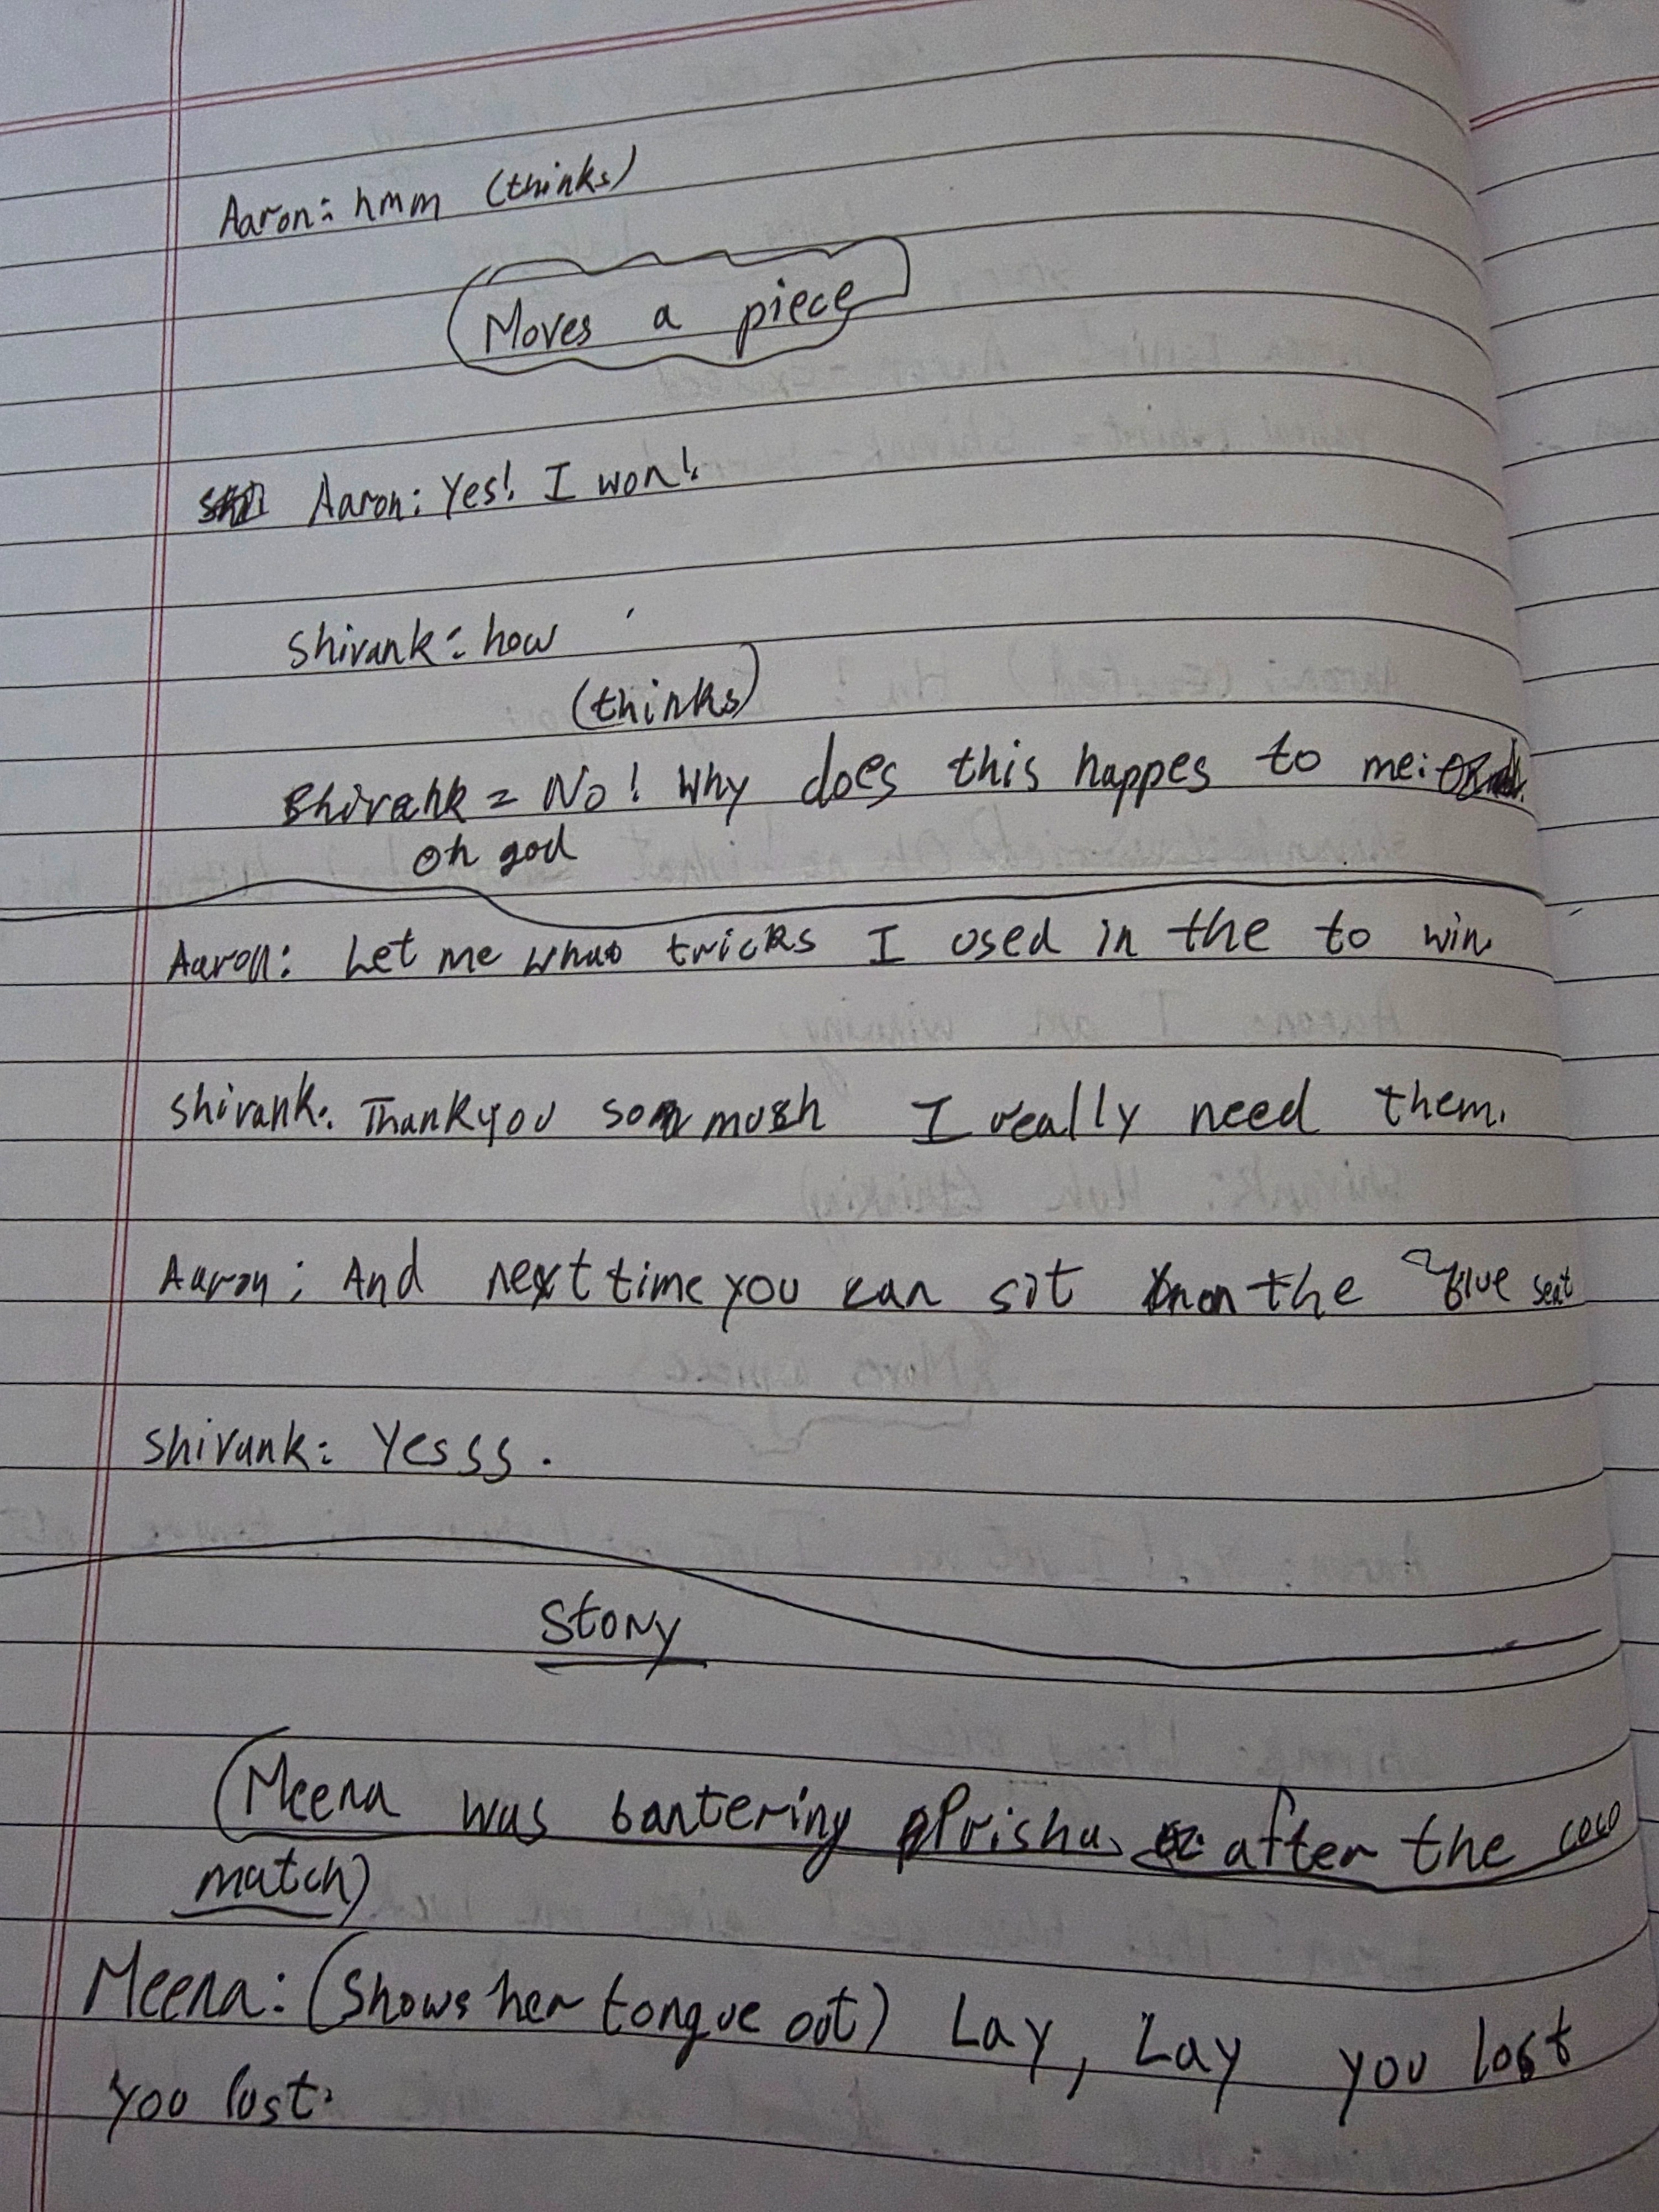 Aaron: hmm (thinks)
Moves a piece
Aaron: Yes! I won!
Shivank: how
(thinks)
Shivank = No! Why does this happes to me:
Oh god
Aaron: Let me what tricks I used in the to win
Shivank: Thankyou so mush I really need them.
Aaron: And next time you can sit on the blue seat
Shivank: Yesss.
Story
(Meena was bantering Prisha after the
match)
Meena: (Shows her tongue out) Lay, Lay you lost
you lost.